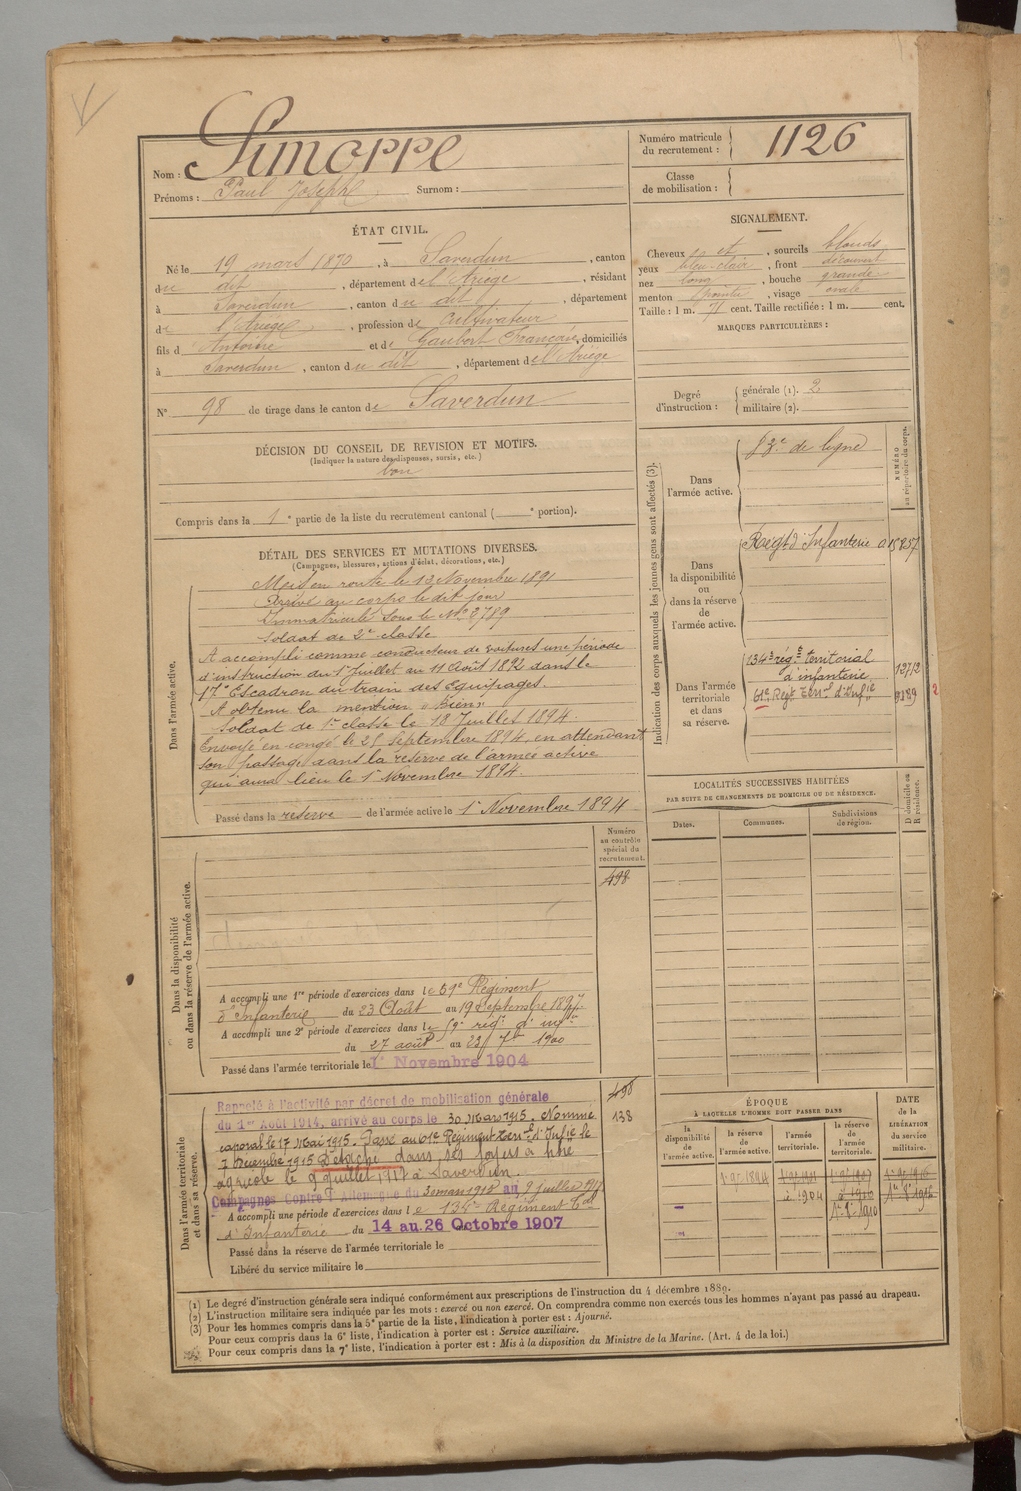 Nom : Simorre
Prénoms : Paul Joseph Surnom :
Numéro matricule du recrutement : 1126
Classe de mobilisation :
ÉTAT CIVIL.
Né le 19 mars 1870, à Saverdun, canton
du dit, département de l'Ariège, résidant
à Saverdun, canton du dit, département
de l'Ariège, profession de cultivateur
fils d Antoine et de Gaubert Françoise, domiciliés
à Saverdun, canton du dit, département de l'Ariège
N° 98 de tirage dans le canton de Saverdun
SIGNALEMENT.
Cheveux et, sourcils blonds
yeux bleu-clair, front découvert
nez long, bouche grande
menton pointu, visage ovale
Taille : 1 m. 71 cent. Taille rectifiée : 1 m. cent.
MARQUES PARTICULIÈRES :
Degré d'instruction : générale (1). 2
militaire (2).
DÉCISION DU CONSEIL DE REVISION ET MOTIFS.
(Indiquer la nature des dispenses, sursis, etc.)
bon
Compris dans la 1e partie de la liste du recrutement cantonal ( e portion).
DÉTAIL DES SERVICES ET MUTATIONS DIVERSES.
(Campagnes, blessures, actions d'éclat, décorations, etc.)
Dans l'armée active.
Mis en route le 13 Novembre 1891
Arrivé au corps le dit jour
Immatriculé sous le No 2789
Soldat de 2e classe
A accompli comme conducteur de voitures une période
d'instruction du 1er Juillet au 11 Août 1892 dans le
17e Escadron du train des Equipages.
A obtenu la mention "Bien"
Soldat de 1re classe le 18 Juillet 1894.
Envoyé en congé le 25 Septembre 1894, en attendant
son passage dans la réserve de l'armée active
qui aura lieu le 1er Novembre 1894.
Passé dans la réserve de l'armée active le 1er Novembre 1894
Indication des corps auxquels les jeunes gens sont affectés (3).
NUMÉRO au répertoire du corps.
Dans l'armée active.
de ligne
Dans la disponibilité ou dans la réserve de l'armée active.
Regt d'Infanterie
Dans l'armée territoriale et dans sa réserve.
134e rég.t territorial
d'infanterie 1272
61e Regt Terr.l d'Inf.ie 9189 2
LOCALITÉS SUCCESSIVES HABITÉES
PAR SUITE DE CHANGEMENTS DE DOMICILE OU DE RÉSIDENCE.
Dates. Communes. Subdivisions de région. D domicile ou R résidence.
Dans la disponibilité ou dans la réserve de l'armée active.
Numéro au contrôle spécial du recrutement.
498
A accompli une 1re période d'exercices dans le 59e Régiment
d'Infanterie du 23 Août au 19 Septembre 1897
A accompli une 2e période d'exercices dans le 59e rég.t d'inf.ie
du 27 août au 23 7bre 1900
Passé dans l'armée territoriale le 1er Novembre 1904
Dans l'armée territoriale et dans sa réserve.
498
138
Rappelé à l'activité par décret de mobilisation générale
du 1er Août 1914, arrivé au corps le 30 Mars 1915. Nommé
caporal le 17 Mai 1915. Passé au 61e Régiment Terr.l d'Inf.ie le
7 Décembre 1915 Détaché dans ses foyers à titre
agricole le 9 juillet 1917 à Saverdun.
Campagnes Contre l'Allemagne du 30 mars 1915 au 9 juillet 1917
A accompli une période d'exercices dans le 134e Régiment T.al
d'Infanterie du 14 au 26 Octobre 1907
Passé dans la réserve de l'armée territoriale le
Libéré du service militaire le
ÉPOQUE
À LAQUELLE L'HOMME DOIT PASSER DANS
la disponibilité de l'armée active. la réserve de l'armée active. l'armée territoriale. la réserve de l'armée territoriale.
DATE de la LIBÉRATION du service militaire.
1er 9e 1894 1er 9e 1907 1er 9e 1916
1904 1910
(1) Le degré d'instruction générale sera indiqué conformément aux prescriptions de l'instruction du 4 décembre 1889.
(2) L'instruction militaire sera indiquée par les mots : exercé ou non exercé. On comprendra comme non exercés tous les hommes n'ayant pas passé au drapeau.
(3) Pour les hommes compris dans la 5e partie de la liste, l'indication à porter est : Ajourné.
Pour ceux compris dans la 6e liste, l'indication à porter est : Service auxiliaire.
Pour ceux compris dans la 7e liste, l'indication à porter est : Mis à la disposition du Ministre de la Marine. (Art. 4 de la loi.)